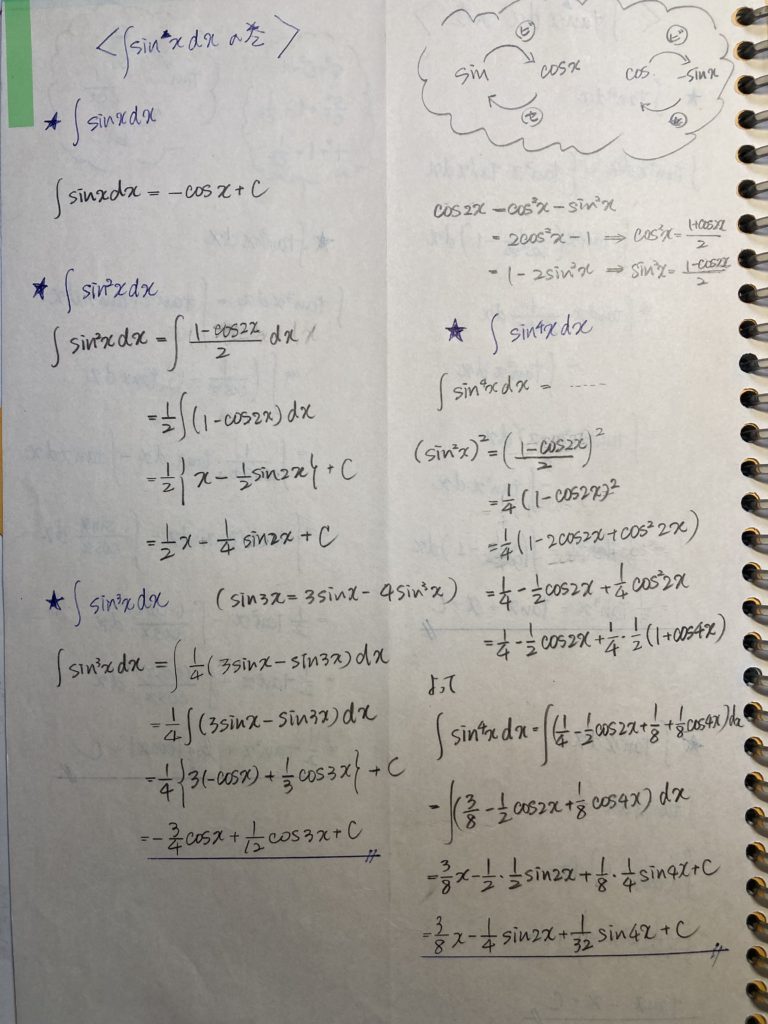 <∫sin^★x dx の形>
★ ∫sinxdx
∫sinxdx = -cosx + C
★ ∫sin²xdx
∫sin²xdx = ∫(1-cos2x)/2 dx
= 1/2∫(1-cos2x)dx
= 1/2{x - 1/2 sin2x} + C
= 1/2 x - 1/4 sin2x + C
★ ∫sin³xdx (sin3x = 3sinx - 4sin³x)
∫sin³xdx = ∫1/4(3sinx - sin3x)dx
= 1/4∫(3sinx - sin3x)dx
= 1/4{3(-cosx) + 1/3 cos3x} + C
= -3/4 cosx + 1/12 cos3x + C
ビ ビ
sin cosx cos -sinx
セ
cos2x = cos²x - sin²x
= 2cos²x - 1 ⇒ cos²x = (1+cos2x)/2
= 1 - 2sin²x ⇒ sin²x = (1-cos2x)/2
★ ∫sin⁴xdx
∫sin⁴xdx = ……
(sin²x)² = ((1-cos2x)/2)²
= 1/4(1-cos2x)²
= 1/4(1-2cos2x+cos²2x)
= 1/4 - 1/2 cos2x + 1/4 cos²2x
= 1/4 - 1/2 cos2x + 1/4・1/2(1+cos4x)
よって
∫sin⁴xdx = ∫(1/4 - 1/2 cos2x + 1/8 + 1/8 cos4x)dx
= ∫(3/8 - 1/2 cos2x + 1/8 cos4x)dx
= 3/8 x - 1/2・1/2 sin2x + 1/8・1/4 sin4x + C
= 3/8 x - 1/4 sin2x + 1/32 sin4x + C